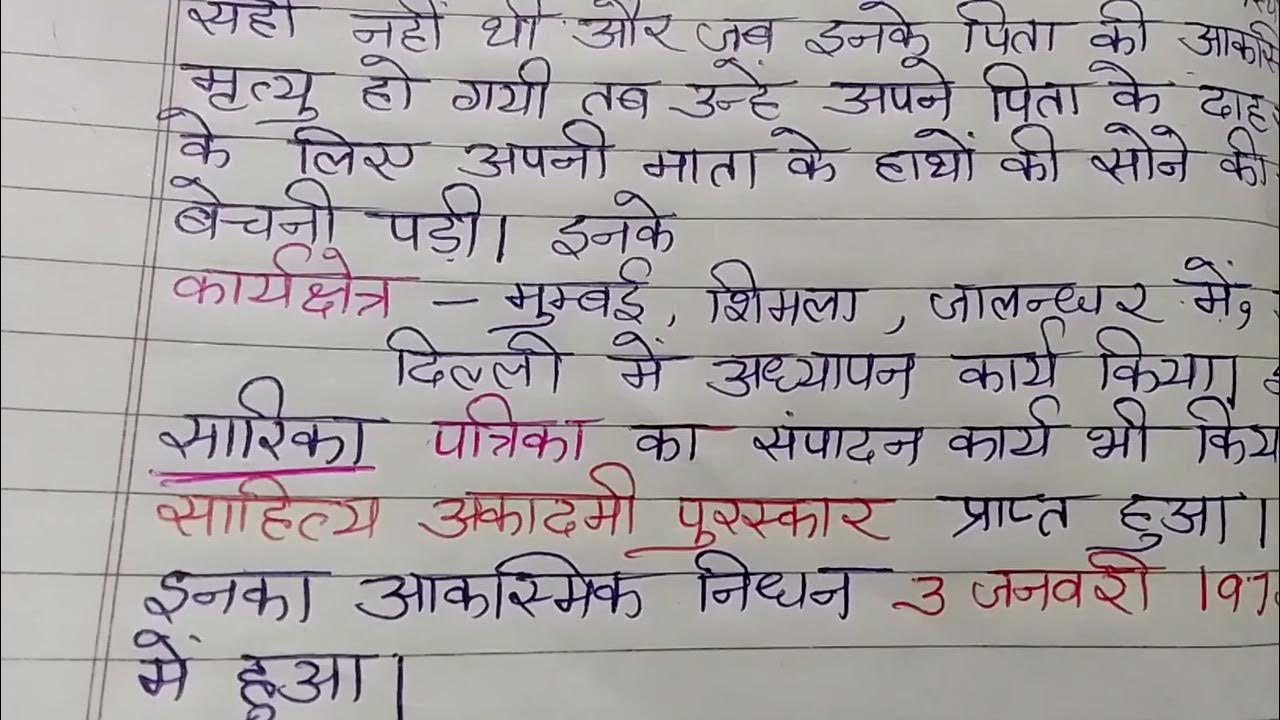 सही नहीं थी और जब इनके पिता की
मृत्यु हो गयी तब उन्हें अपने पिता के दाह
के लिए अपनी माता के हाथों की सोने की
बेचनी पड़ी। इनके
कार्यक्षेत्र – मुम्बई, शिमला, जालन्धर में,
दिल्ली में अध्यापन कार्य किया।
सारिका पत्रिका का संपादन कार्य भी
साहित्य अकादमी पुरस्कार प्राप्त हुआ।
इनका आकस्मिक निधन 3 जनवरी
में हुआ।